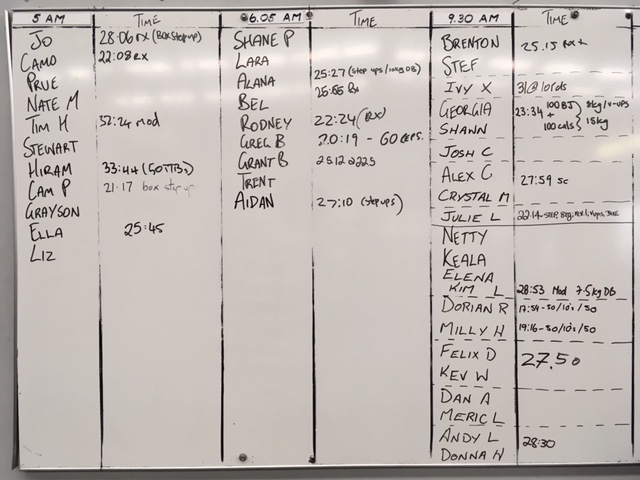 5 AM
TIME
JO 28:06 RX (BOX Step up)
CAMO 22:08 RX
PRUE
NATE M
TIM H 32:24 mod
STEWART
HIRAM 33:44
CAM P 21:17 box step up
GRAYSON
ELLA 25:45
LIZ
6.05 AM
TIME
SHANE P
LARA
ALANA 25:27 (step ups/10kg DB)
BEL Rx
RODNEY 22:24 (RX)
GREG B 20:19 - 60 reps.
GRANT B
TRENT
AIDAN 27:10 (step ups)
9.30 AM
TIME
BRENTON 25.15 RX+
STEF
IVY X
GEORGIA 23:34 100 BJ 8kg/v-ups
SHANN + 100 cals 15kg
JOSH C
ALEX C 27:59 sc
CRYSTAL M
JULIE L 22:14
NETTY
KEALA
ELENA
KIM L 28:53 Mod 7.5kg DB
DORIAN R 17:59-50/10's/50
MILLY H 19:16-50/10's/50
FELIX D 27.50
KEV W
DAN A
MERIC L
ANDY L 28:30
DONNA H